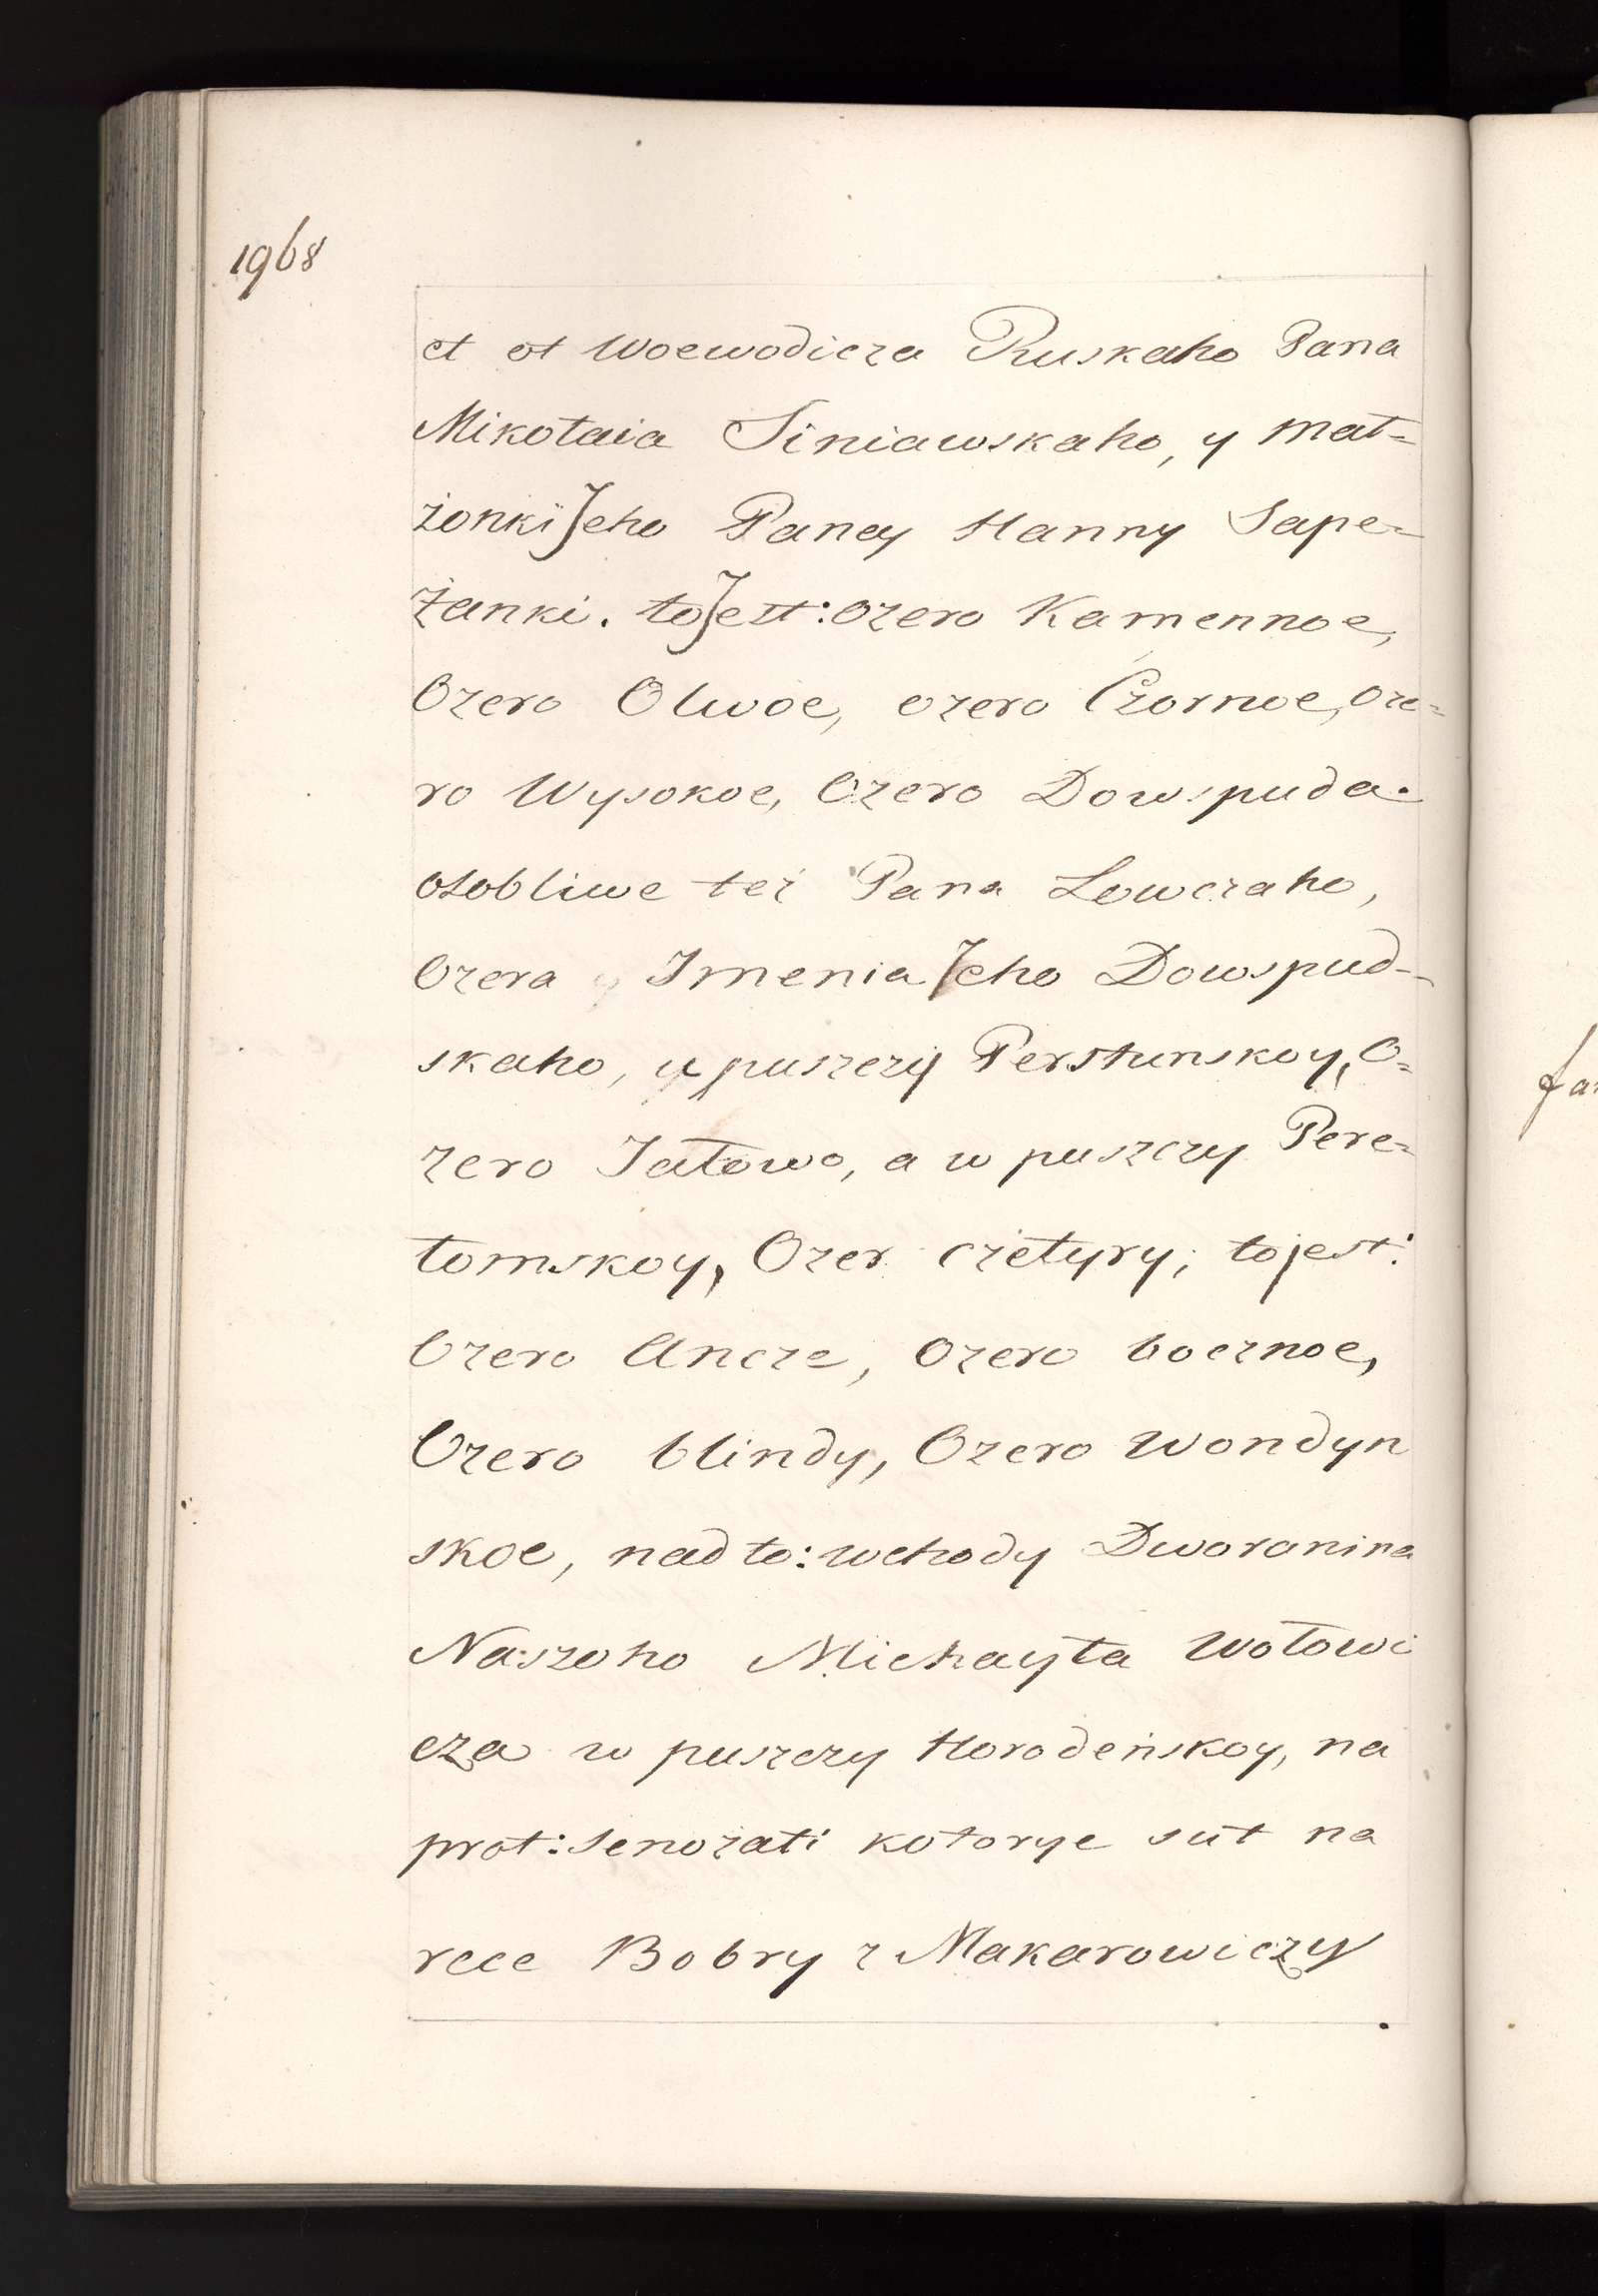 1968
et ot Woewodicza Ruskaho Pana
Mikołaia Siniawskaho, y Mał=
żonki Jeho Paney Hanny Sape=
żanki. to Jest: Ozero Kamennoe,
Ozero Olwoe, ozero Czornoe, Oze=
ro Wysokoe, Ozero Dowspuda.
osobliwe też Pana Łowczaho,
Ozera y Imenia Jeho Dowspud-
skaho, u puszczy Perstunskoy, O=
zero Jałowo, a w puszczy Pere=
łomskoy, Ozer czetyry; to jest:
Ozero Ancze, Ozero bocznoe,
Ozero blindy, Ozero Wondyn
skoe, nad to: wchody Dworanina
Naszoho Michayła Wołowi
cza w puszczy Horodeńskoy, na
prot: Senozati kotorye sut na
rece Bobry z Makarowiczy